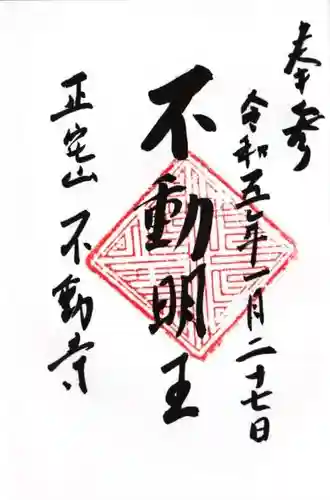 奉拝
令和五年一月二十七日
不動明王
正宅山 不動寺